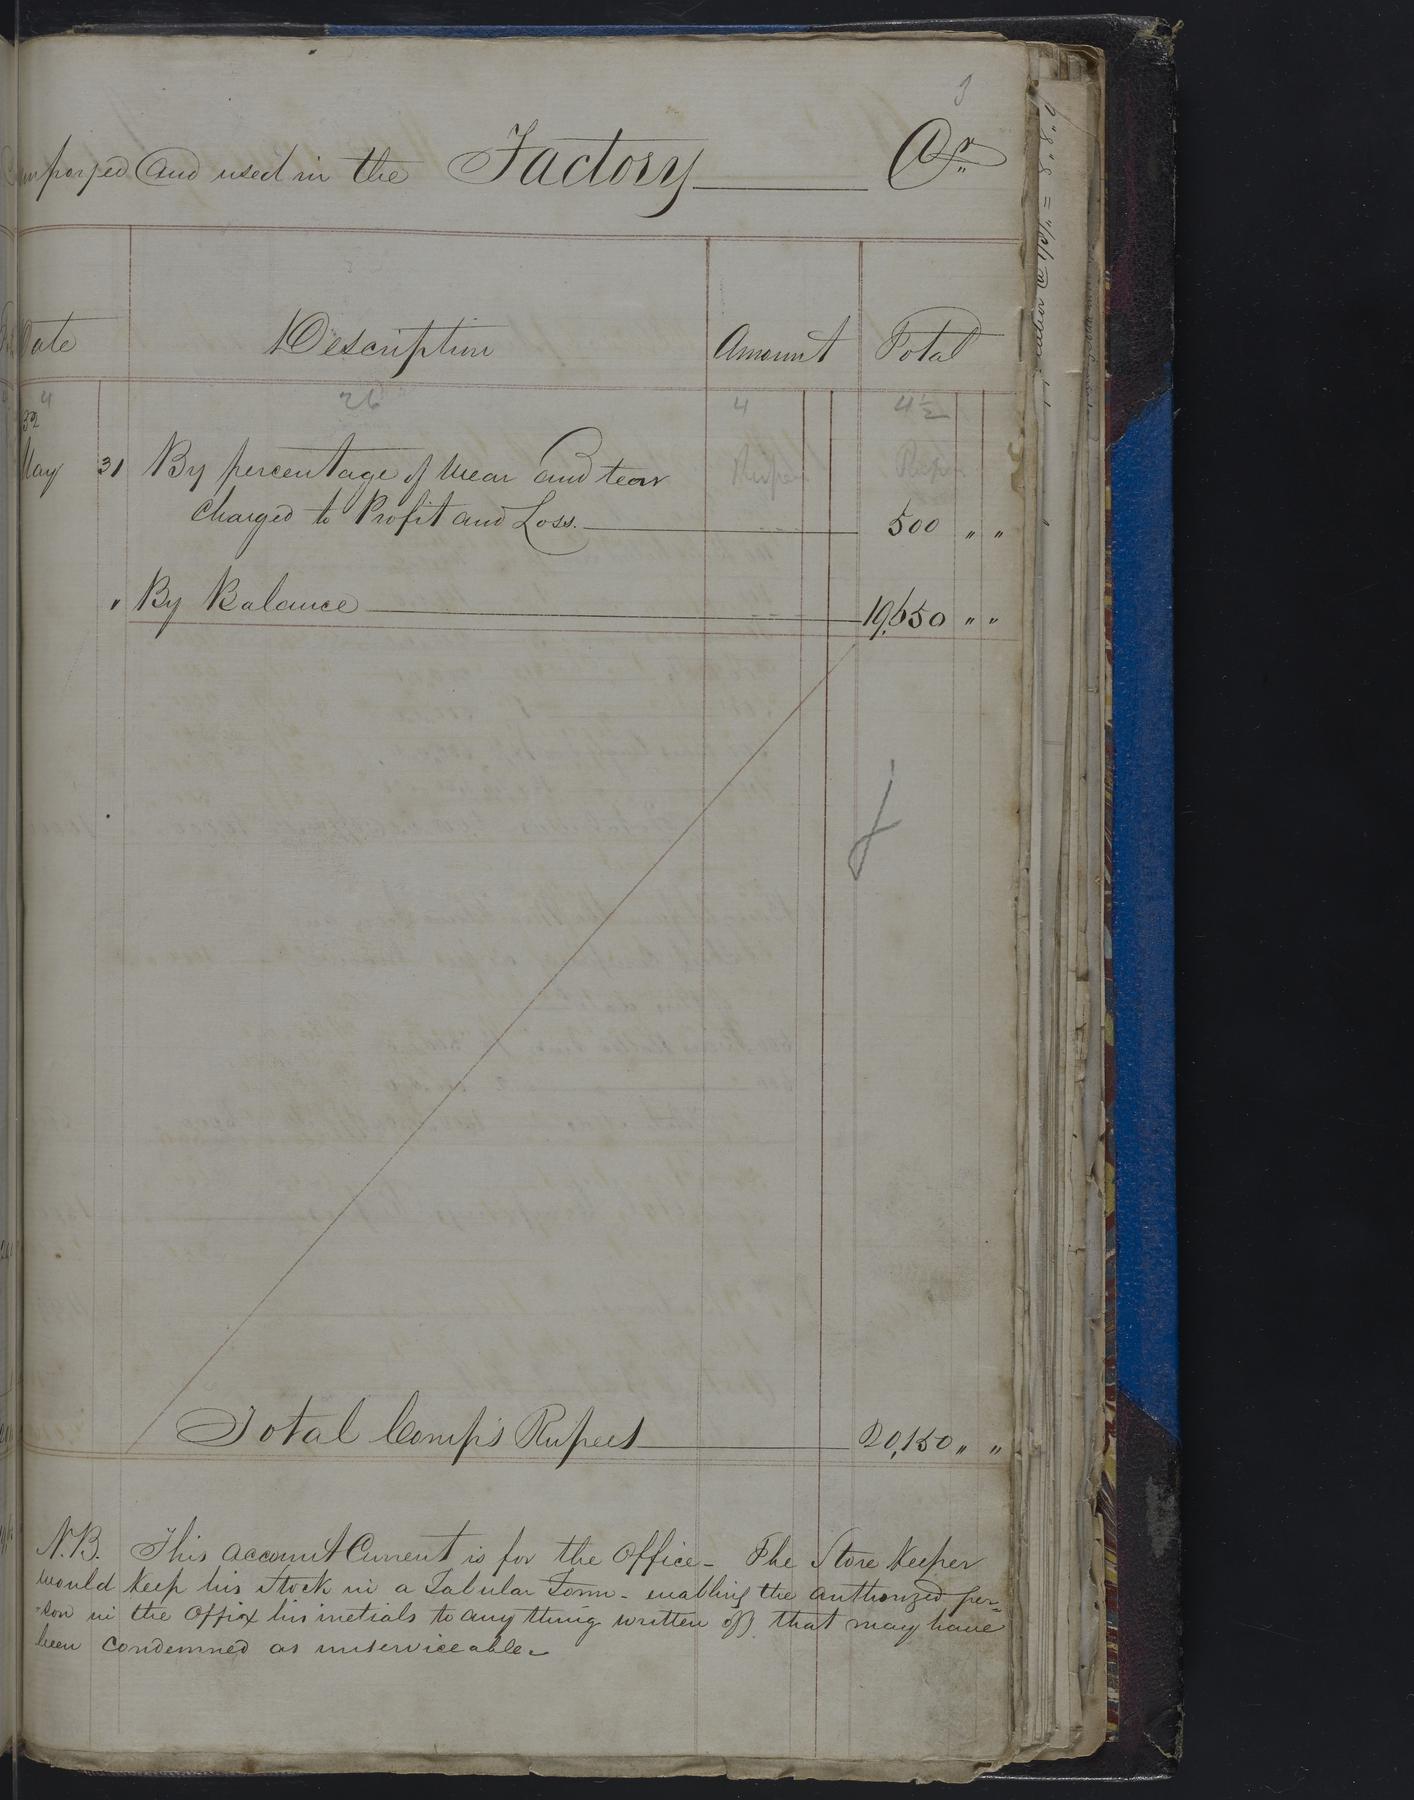 3
and used in the Factory Cr
Date Description Amount Total
4 26 4 4½
32
May 31 By percentage of Wear and tear Rupees Rupees
Charged to Profit and Loss. 500 " "
" By Balance 19,650 " "
Total Comp's Rupees 20,150 " "
N.B. This account Current is for the Office - The Store Keeper
would Keep his Stock in a Tabular Form - enabling the authorized per=
=son in the Office his inetials to any thing written off that may have
been condemned as unserviceable -